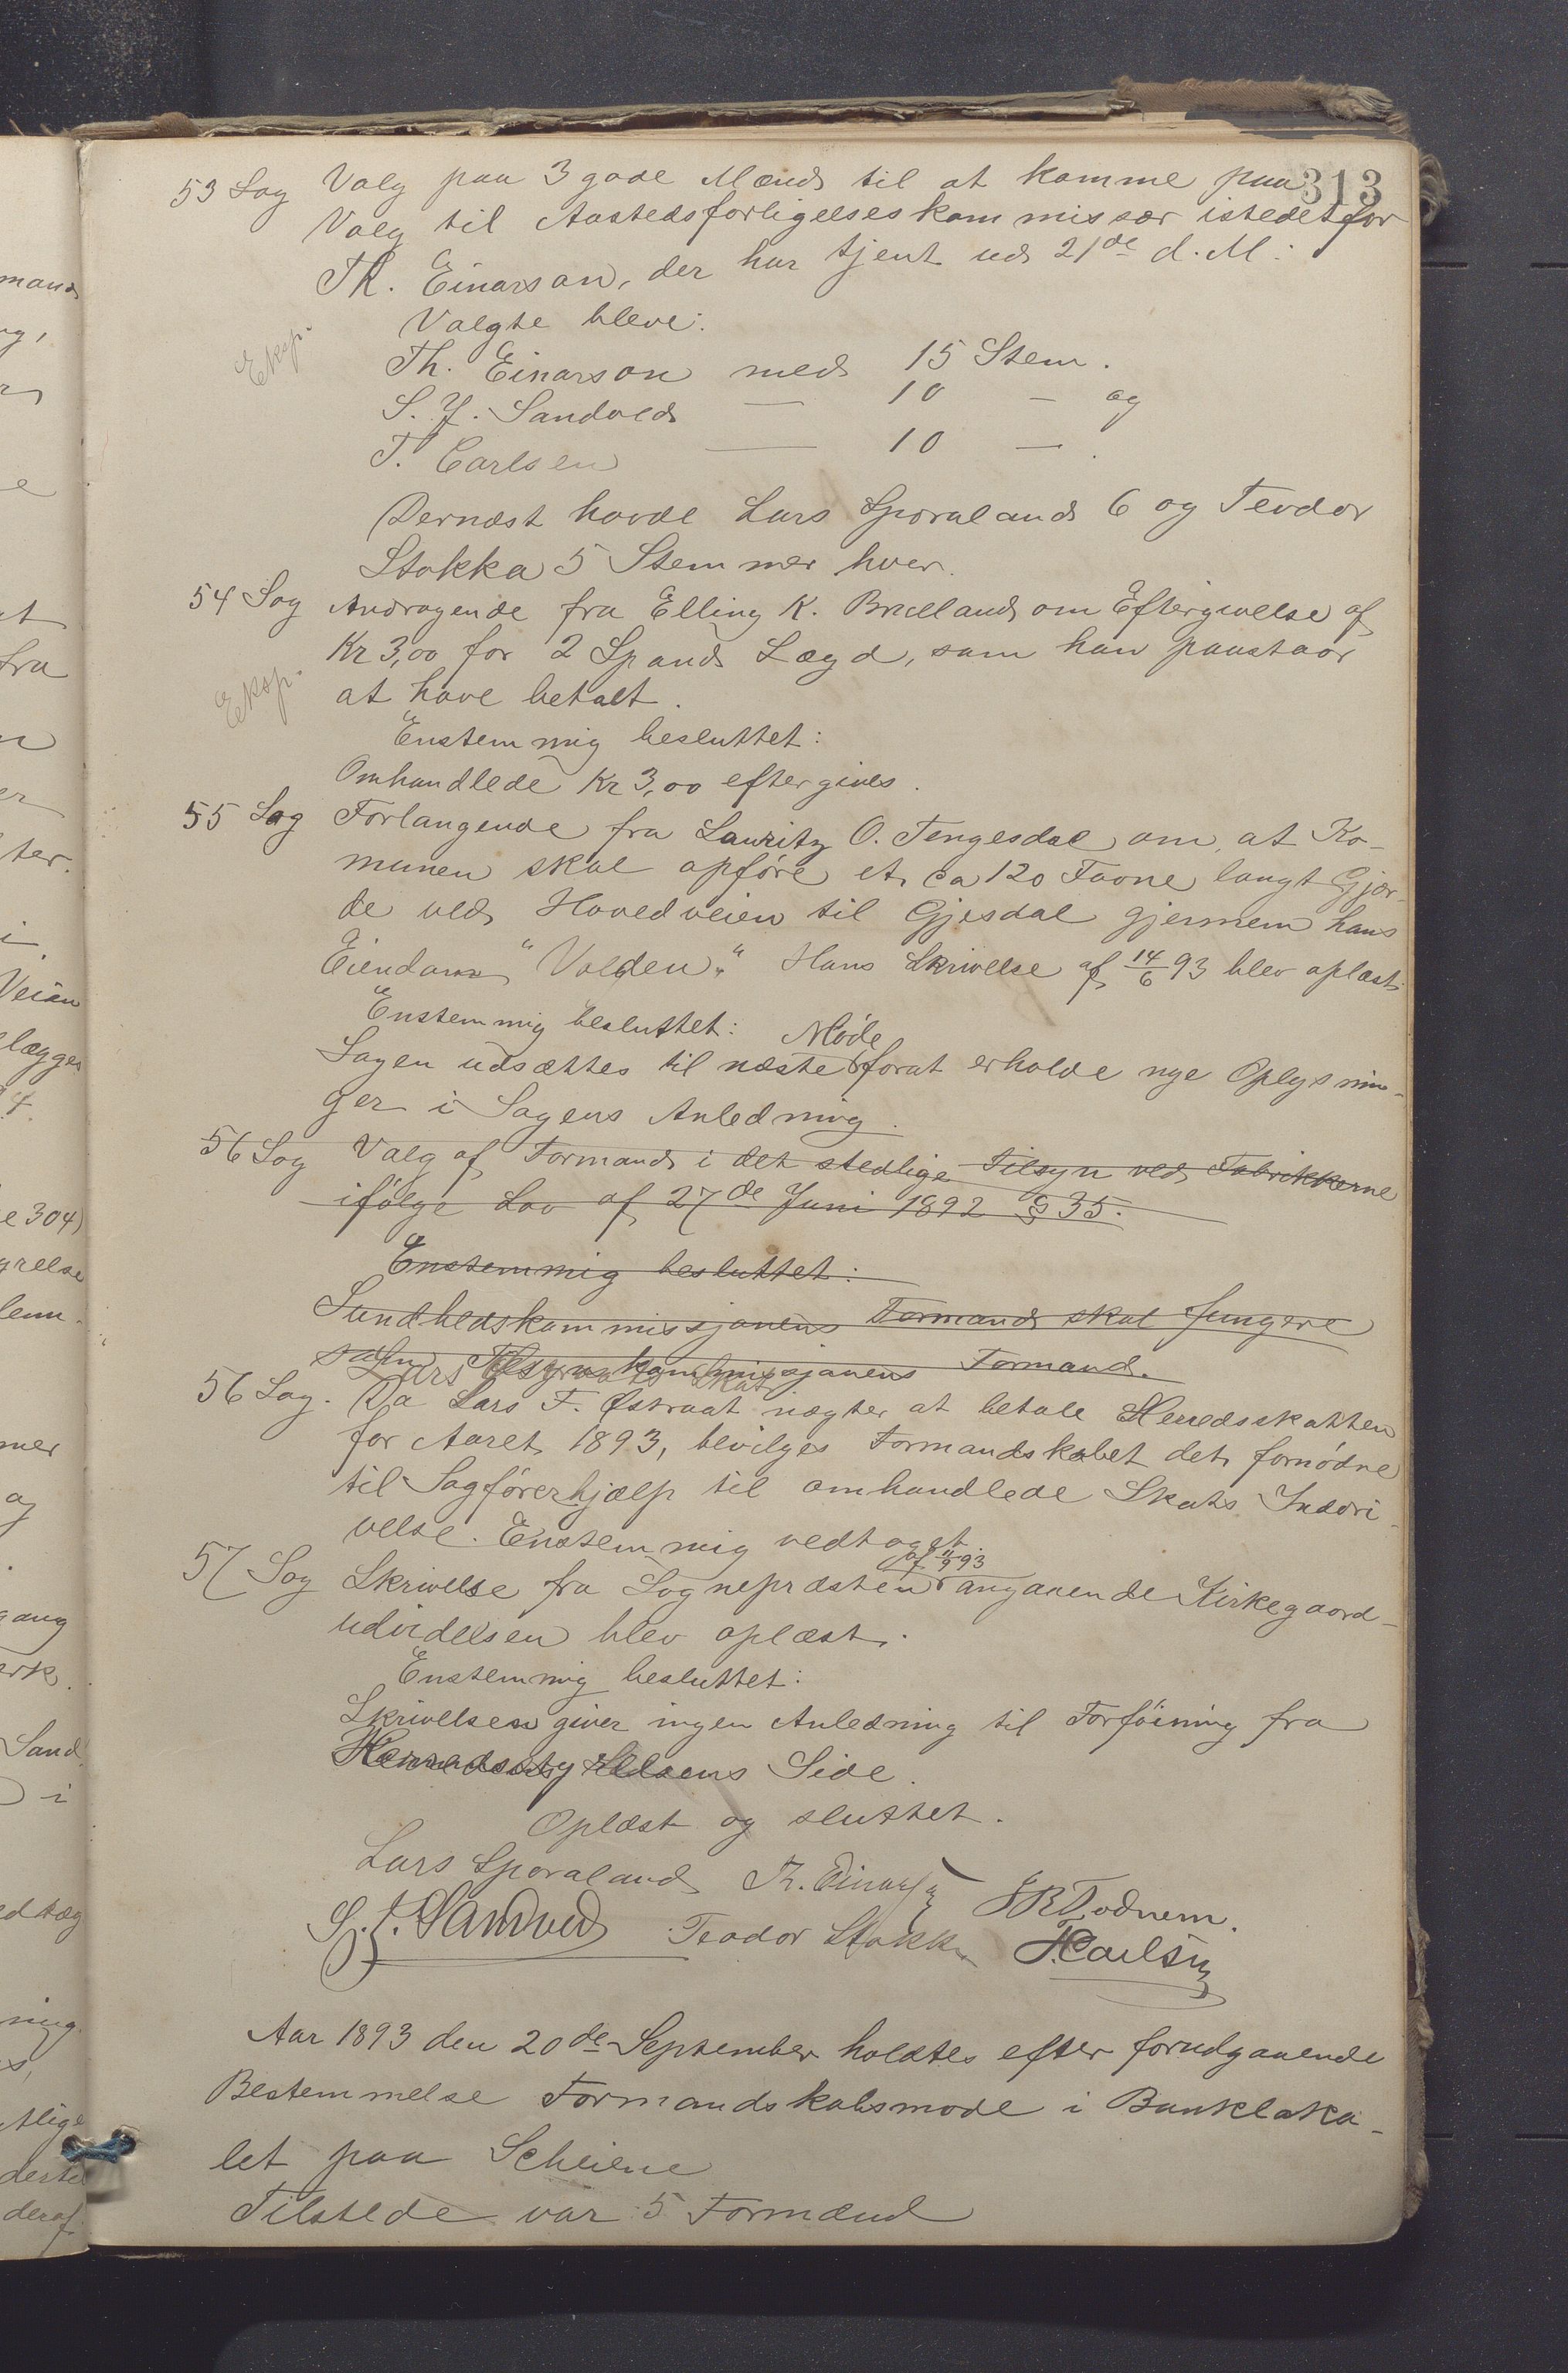 313
53 Sag Valg paa 3 gode Mænd til at komme paa
Valg til Aastedsforligelseskommissær istedetfor
Th. Einarson, der har tjent ud 21de d. M.:
Valgte bleve:
Eksp.
Th. Einarson med 15 Stem.
S. J. Sandved — 10 — og
T. Carlsen — 10 —.
Dernæst havde Lars Sporaland 6 og Teodor
Stokka 5 Stemmer hver.
54 Sag Andragende fra Elling K. Brulland om Eftergivelse af
Kr 3,00 for 2 Spand Lægd, som han paastaar
Eksp.
at have betalt.
Enstemmig besluttet:
Omhandlede Kr 3,00 eftergives.
55 Sag Forlangende fra Lauritz O. Tengesdal om, at Ko-
munen skal opføre et ca 120 Favne langt Gjær-
de ved Hovedveien til Gjesdal gjennem hans
Eiendom "Volden". Hans Skrivelse af 14/6 93 blev oplæst.
Enstemmig besluttet:
Sagen udsættes til næste Møde forat erholde nye Oplysnin-
ger i Sagens Anledning.
56 Sag Valg af Formand i det stedlige Tilsyn ved Fabrikkerne
ifølge Lov af 27de Juni 1892 § 35.
Enstemmig besluttet:
Sundhedskommissjonens Formand skal fungere
som Tilsynskommissjonens Formand.
Lars Østraats Skat
56 Sag. Da Lars F. Østraat nægter at betale Herredsskatten
for Aaret 1893, bevilges Formandskabet det fornødne
til Sagførerhjælp til omhandlede Skats Inddri-
velse. Enstemmig vedtaget.
57 Sag Skrivelse fra Sognepræsten af 11/9 93 angaaende Kirkegaard-
udvidelsen blev oplæst.
Enstemmig besluttet:
Skrivelsen giver ingen Anledning til Forføining fra
Herredsstyrelsens Side.
Oplæst og sluttet.
Lars Sporaland Th. Einarson J B Todnem.
S. J. Sandved Teodor Stokka T. Carlsen
Aar 1893 den 20de September holdtes efter forudgaaende
Bestemmelse Formandskabsmøde i Bankloka-
let paa Scheiene
Tilstede var 5 Formænd